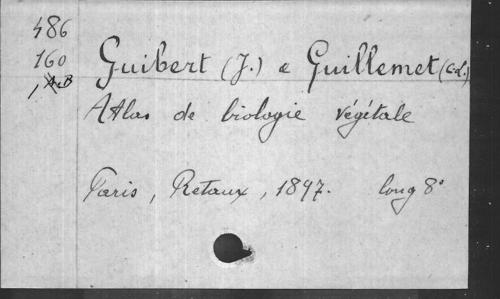 486
160
Guibert (J.) e Guillemet (C.-L.)
Atlas de biologie végétale
Paris, Retaux, 1897. long 8°